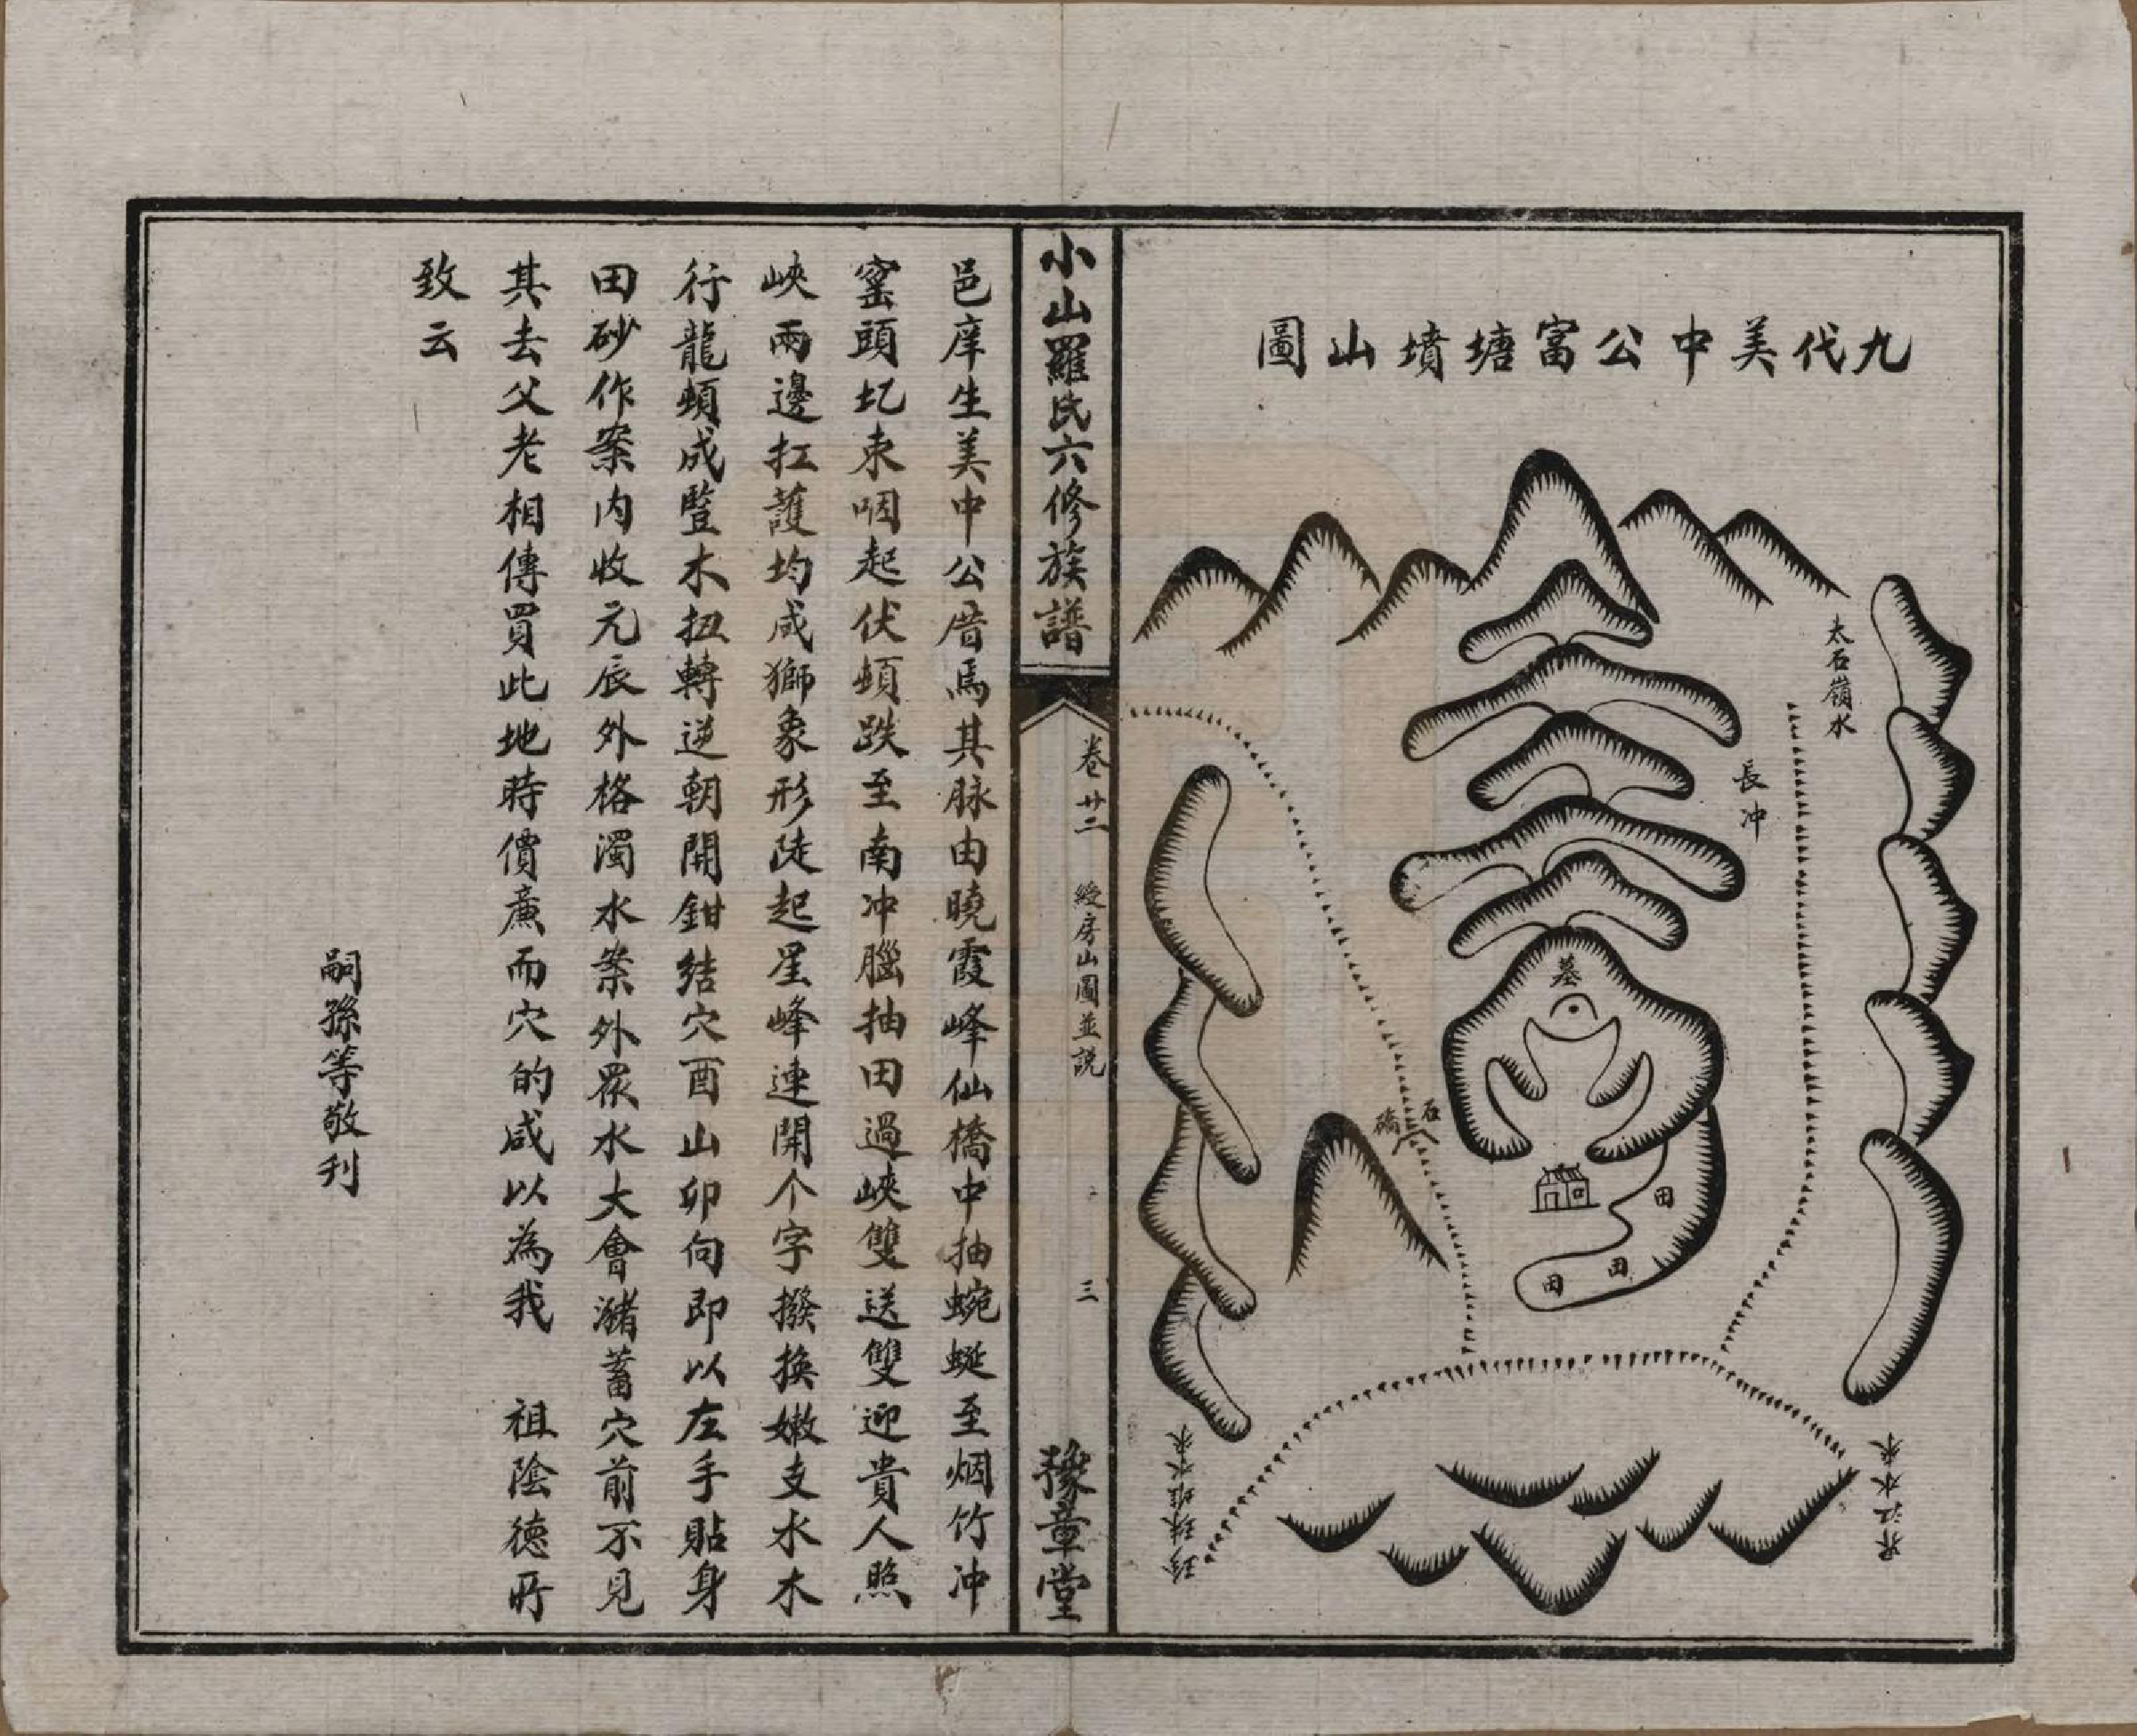 九代美中公富塘墳山圖
太石嶺水
長冲
墓
石
橋
田
田
田
界江水來
珍珠堆水來
小山羅氏六修族譜
卷廿二
綬房山圖並説
三
豫章堂
邑庠生美中公厝焉其脉由曉霞峰仙橋中抽蜿蜒至烟竹冲
窰頭圪束咽起伏頓跌至南冲腦抽田過峽雙送雙迎貴人照
峽兩邊扛護均成獅象形陡起星峰連開个字撥換嫩支水木
行龍頓成豎木扭轉逆朝開鉗結穴酉山卯向即以左手貼身
田砂作案内收元辰外格濁水案外眾水大會瀦蓄穴前不見
其去父老相傳買此地時價亷而穴的咸以為我 祖隂德所
致云
嗣孫等敬刋